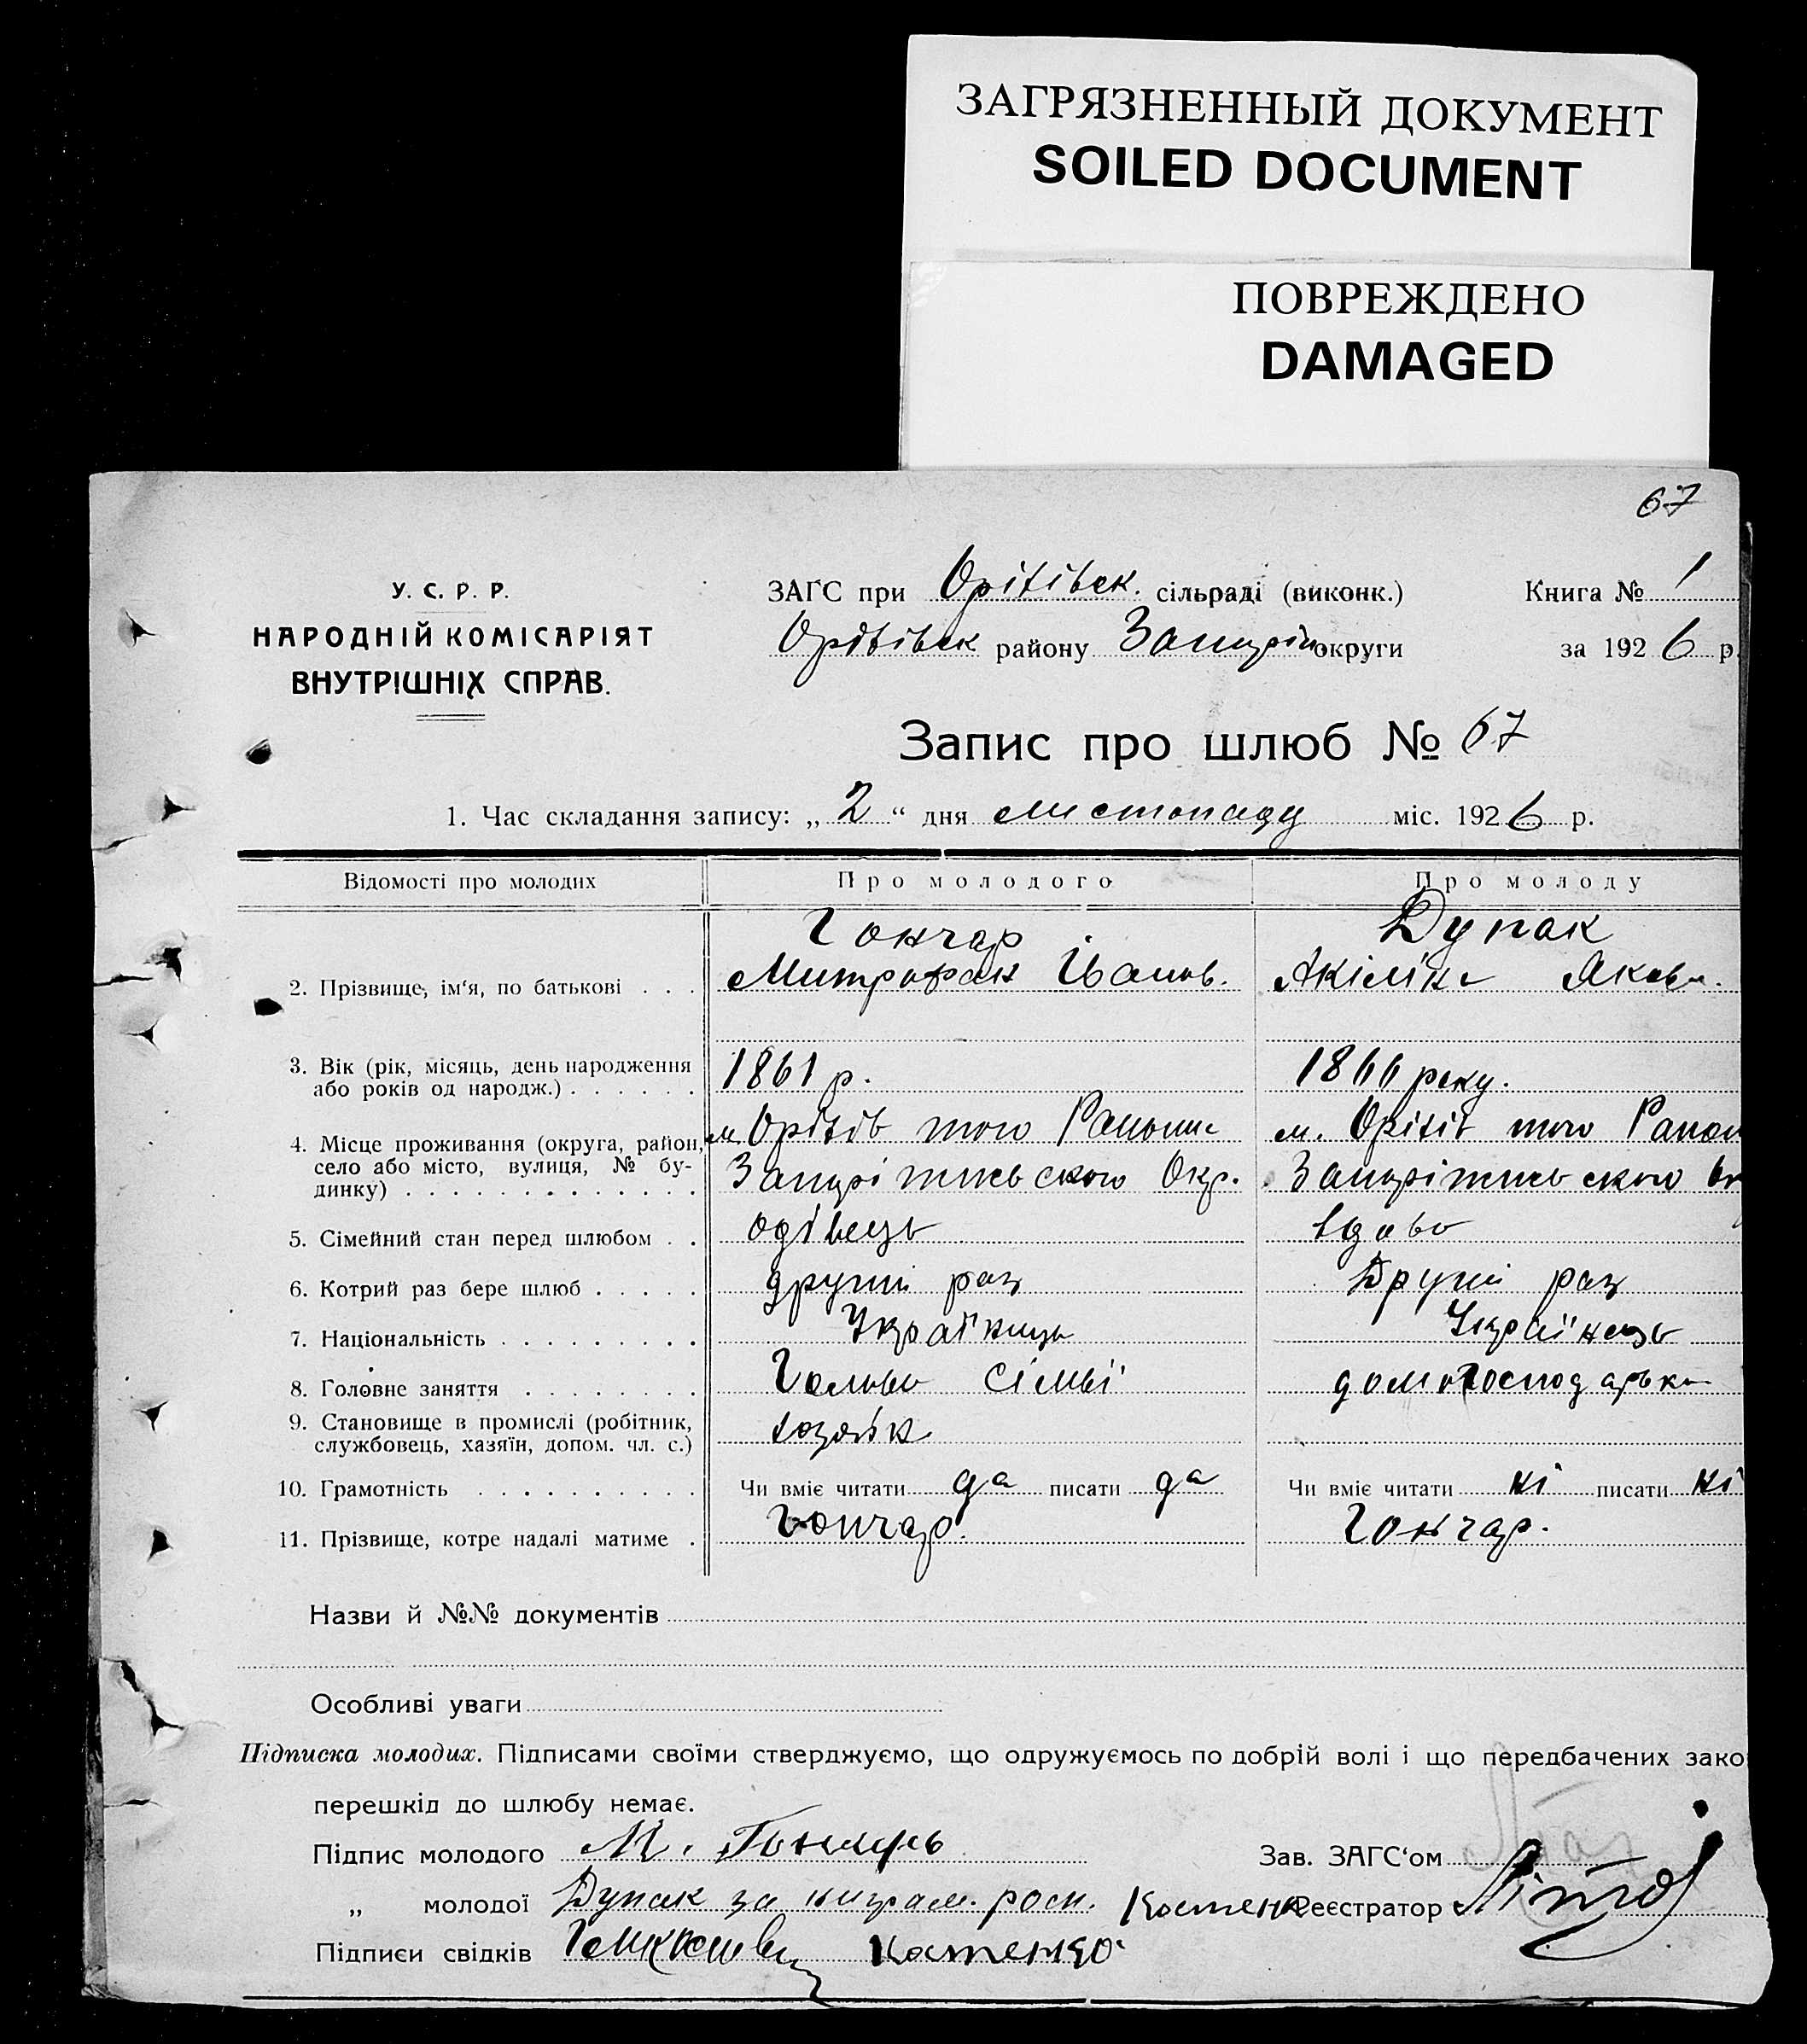 ЗАГРЯЗНЕННЫЙ ДОКУМЕНТ
SOILED DOCUMENT
ПОВРЕЖДЕНО
DAMAGED
67
У. С. Р. Р.
НАРОДНІЙ КОМІСАРІЯТ
ВНУТРІШНІХ СПРАВ.
ЗАГС при Орітівск. сільраді (виконк.)
Орітівск району Запоріж округи
Книга № 1
за 1926 р.
Запис про шлюб № 67
1. Час складання запису: „ 2 “ дня листопаду міс. 1926 р.
Відомості про молодих Про молодого Про молоду
Гончар Дупак
2. Прізвище, ім‘я, по батькові . . . Митрофан Іванов. Акіліна Яковл.
3. Вік (рік, місяць, день народження
або років од народж.) . . . . . . 1861 р. 1866 року.
4. Місце проживання (округа, район, м. Орітів того Району м. Орітів того Район
село або місто, вулиця, № бу-
динку) . . . . . . . . . . . . . Запоріжського Окр. Запоріжського Ок
5. Сімейний стан перед шлюбом . . одівець вдова
6. Котрий раз бере шлюб . . . . . другий раз Другий раз
7. Національність . . . . . . . . . Українець Українець
8. Головне заняття . . . . . . . . Голова сімьї домогосподарька
9. Становище в промислі (робітник,
службовець, хазяїн, допом. чл. с.) хозяїн
10. Грамотність . . . . . . . . . . Чи вміє читати да писати да Чи вміє читати ні писати ні
11. Прізвище, котре надалі матиме . Гончар. Гончар.
Назви й №№ документів
Особливі уваги
Підписка молодих. Підписами своїми стверджуємо, що одружуємось по добрій волі і що передбачених зако
перешкід до шлюбу немає.
Підпис молодого М. Гончарь
Зав. ЗАГС‘ом
„ молодої Дупак за ниграм. росп. Костенко
Реєстратор
Підписи свідків Костенко